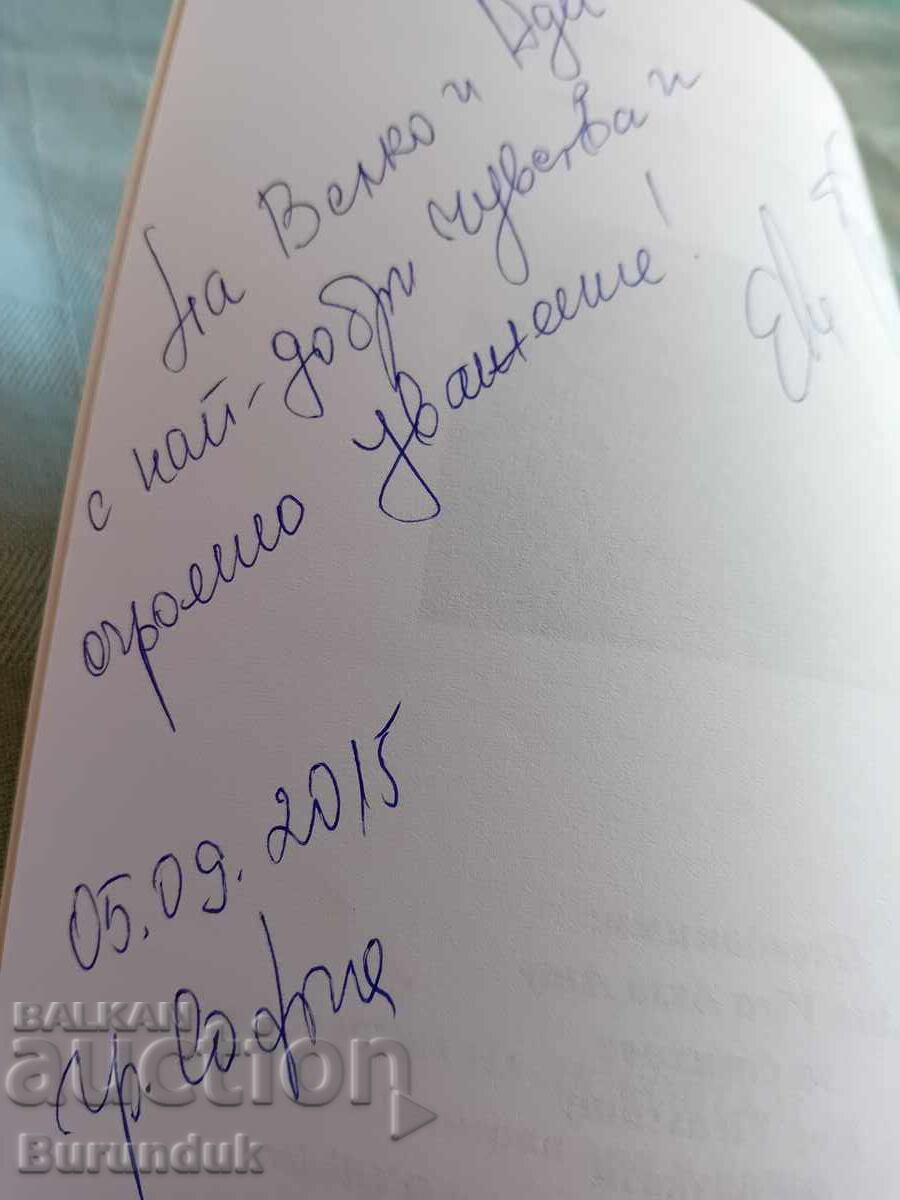 На Велко и Ади
с най-добри чувства и
огромно уважение!
05.09.2015
гр. София
BALKAN
auction
Burunduk